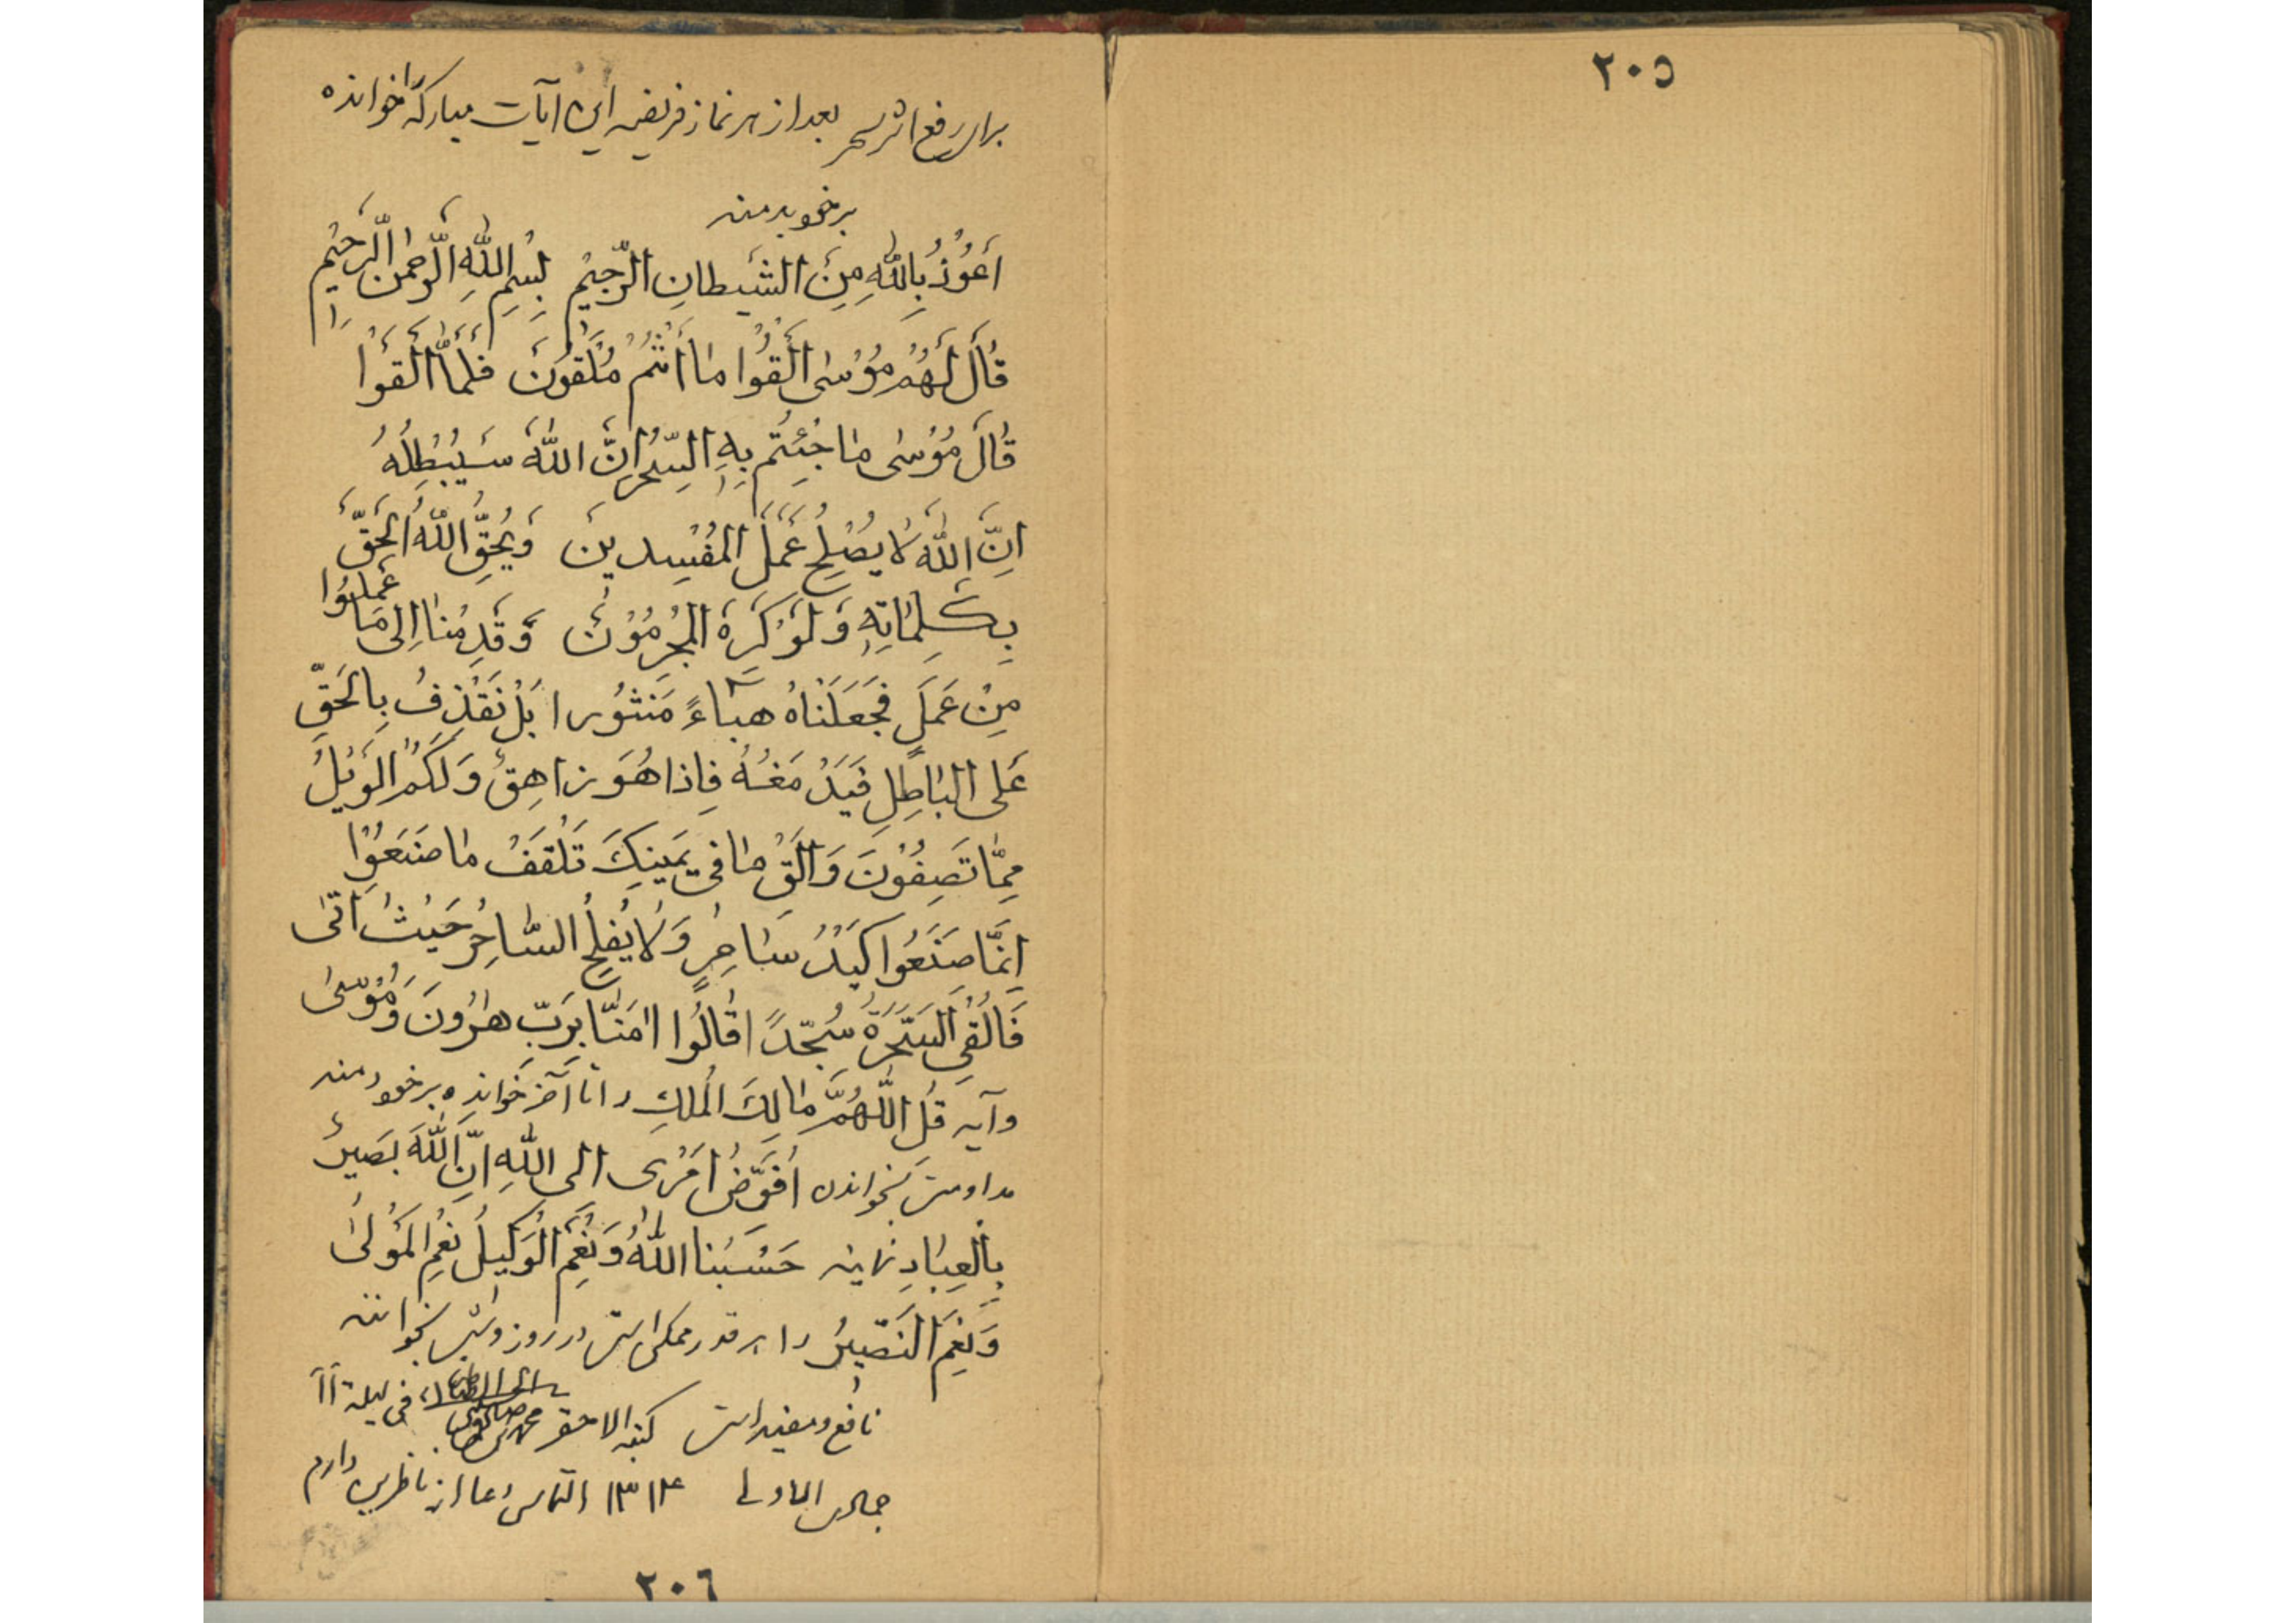 ٢٠٥
برای رفع اثر سحر بعد از هر نماز فریضه این آیات مبارکه را خوانده
بر خود بدمند
اَعُوْذُ بِاللّٰهِ مِنَ الشَّیْطانِ الرَّجیْمِ بِسْمِ اللّٰهِ الرَّحْمٰنِ الرَّحیْمِ
قٰالَ لَهُمْ مُوْسٰی اَلْقُوْا مٰا اَنْتُمْ مُلْقُوْنَ فَلَمّٰا اَلْقَوْا
قٰالَ مُوْسٰی مٰا جِئْتُمْ بِهِ السِّحْرُ اِنَّ اللّٰهَ سَیُبْطِلُهُ
اِنَّ اللّٰهَ لٰا یُصْلِحُ عَمَلَ الْمُفْسِدینَ وَیُحِقُّ اللّٰهُ الْحَقَّ
بِکَلِمٰاتِهِ وَلَوْ کَرِهَ الْمُجْرِمُوْنَ وَقَدِمْنٰا اِلیٰ مٰا عَمِلُوا
مِنْ عَمَلٍ فَجَعَلْنٰاهُ هَبٰاءً مَنْثُورا بَلْ نَقْذِفُ بِالْحَقِّ
عَلَی الْبٰاطِلِ فَیَدْمَغُهُ فَاِذا هُوَ زاهِقٌ وَلَکُمُ الْوَیْلُ
مِمّٰا تَصِفُوْنَ وَاَلْقِ مٰا فی یَمینِکَ تَلْقَفْ مٰا صَنَعُوْا
اِنَّمٰا صَنَعُوا کَیْدُ سٰاحِرٍ وَلٰا یُفْلِحُ السّٰاحِرُ حَیْثُ اَتٰی
فَاُلْقِیَ السَّحَرَةُ سُجَّدًا قٰالُوا اٰمَنّٰا بِرَبِّ هٰرُونَ وَمُوْسٰی
و آیه قُلِ اللّٰهُمَّ مٰالِکَ الْمُلْکِ را تا آخر خوانده بر خود دمند
مداومت بخواندن اُفَوِّضُ اَمْری الی اللّٰهِ اِنَّ اللّٰهَ بَصیرٌ
بِالْعِبٰادِ نمایند حَسْبُنَا اللّٰهُ وَنِعْمَ الْوَکیلُ نِعْمَ الْمَوْلیٰ
وَنِعْمَ النَّصیرُ را هر قدر ممکن است در روز و شب بخوانند
نافع و مفید است کتبه الاحقر فی لیلة ١١
جمادی الاولی ١٣١٤ التماس دعا از ناظرین دارم
٢٠٦